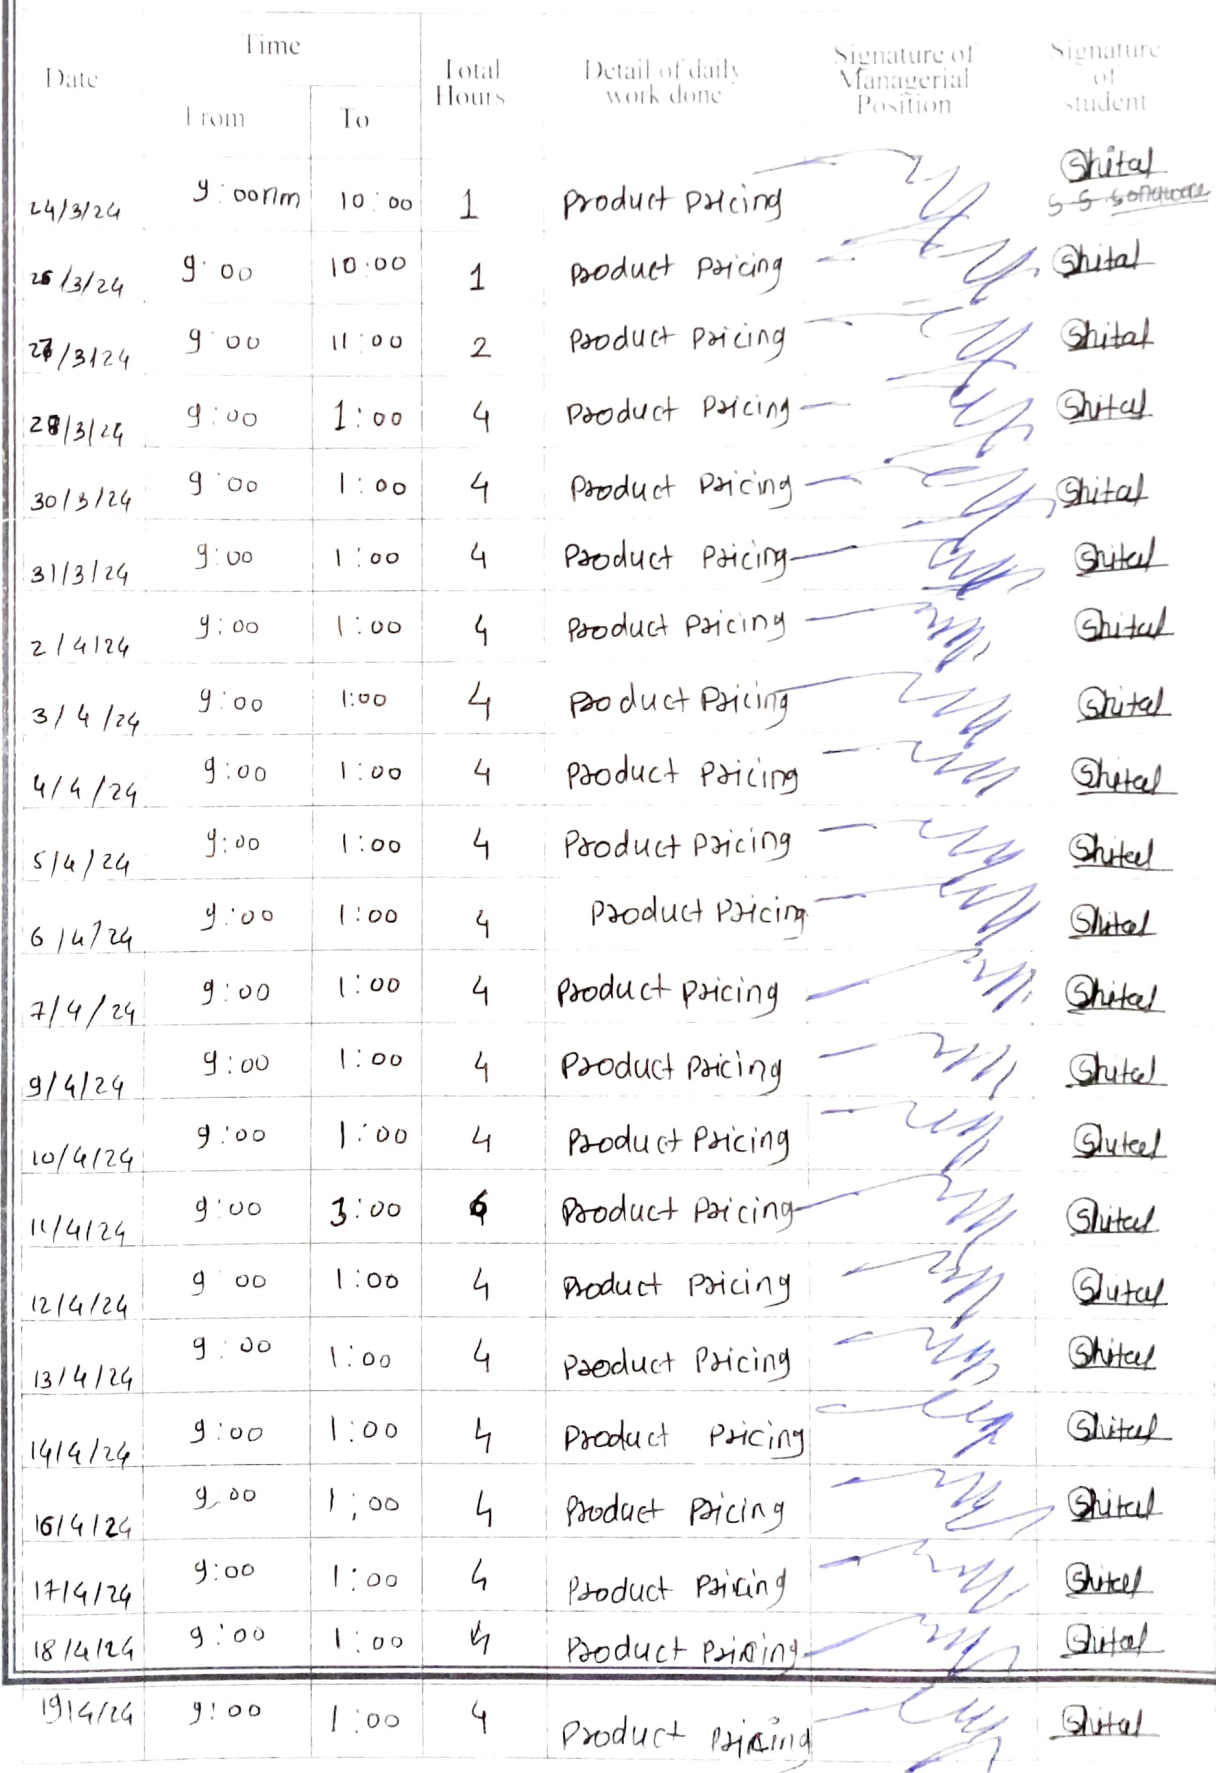 Date Time From To Total Hours Detail of daily work done Signature of Managerial Position Signature of student
24/3/24 9:00 10:00 1 Product Pricing Shital
26/3/24 9:00 10:00 1 Product Pricing Shital
27/3/24 9:00 11:00 2 Product Pricing Shital
28/3/24 9:00 1:00 4 Product Pricing Shital
30/3/24 9:00 1:00 4 Product Pricing Shital
31/3/24 9:00 1:00 4 Product Pricing Shital
2/4/24 9:00 1:00 4 Product Pricing Shital
3/4/24 9:00 1:00 4 Product Pricing Shital
4/4/24 9:00 1:00 4 Product Pricing Shital
5/4/24 9:00 1:00 4 Product Pricing Shital
6/4/24 9:00 1:00 4 Product Pricing Shital
7/4/24 9:00 1:00 4 Product Pricing Shital
9/4/24 9:00 1:00 4 Product Pricing Shital
10/4/24 9:00 1:00 4 Product Pricing Shital
11/4/24 9:00 3:00 6 Product Pricing Shital
12/4/24 9:00 1:00 4 Product Pricing Shital
13/4/24 9:00 1:00 4 Product Pricing Shital
14/4/24 9:00 1:00 4 Product Pricing Shital
16/4/24 9:00 1:00 4 Product Pricing Shital
17/4/24 9:00 1:00 4 Product Pricing Shital
18/4/24 9:00 1:00 4 Product Pricing Shital
19/4/24 9:00 1:00 4 Product Pricing Shital